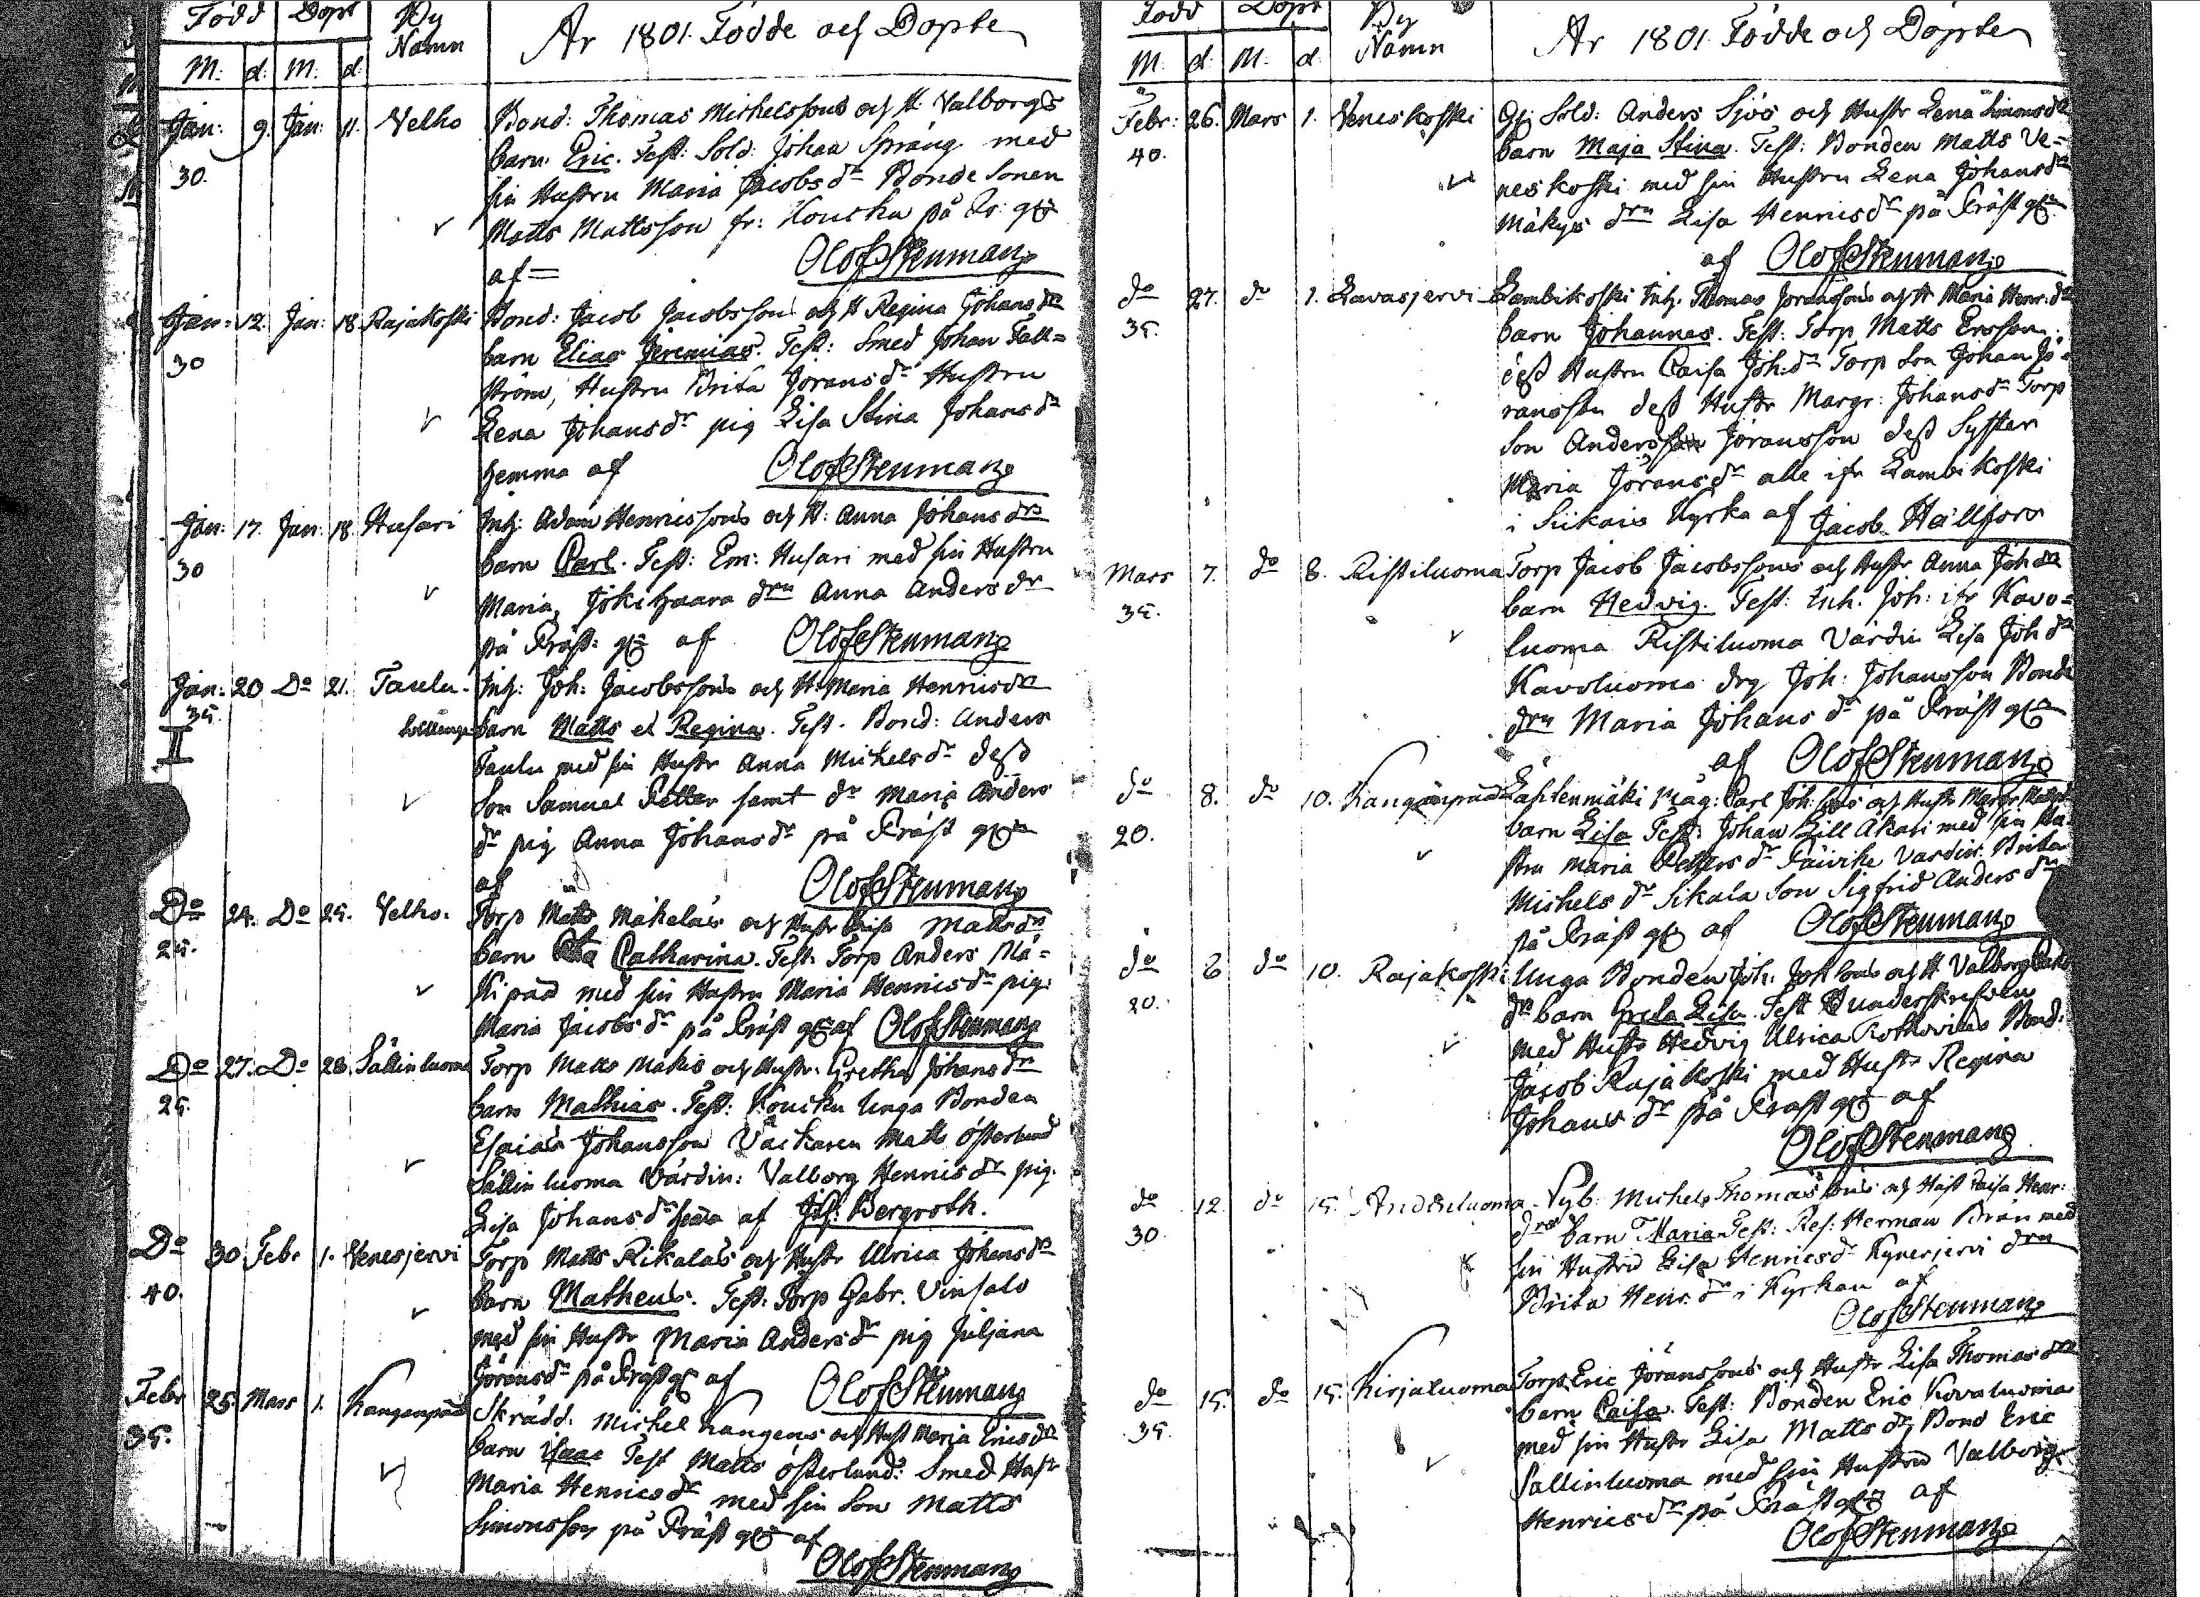 Född Döpt By Namn År 1801. Födde och Döpte
M: d: M: d:
Jan: 9. Jan: 11. Velho Bond: Thomas Michelssons och H: Valborgs
30. barn Eric. Test: Sold: Johan Spräng med
sin Hustru Maria Jacobs dr Bonde Sonen
Matts Mattsson fr: Koucku på
af= Olof Stenman
Jan: 12. Jan: 18. Rajakoski Bond: Jacob Jacobssons och H Regina Johans dr
30 barn Elias Jeremias. Test: Smed Johan Fall=
ström, Hustru Brita Jörans dr Hustru
Lena Johans dr pig Lisa Stina Johans dr
hemma af Olof Stenman
Jan: 17. Jan: 18. Husari Inh: Adam Henricssons och H: Anna Johans drs
30 barn Carl. Test: Em: Husari med sin Hustru
Maria, Jokihaara drn Anna Anders dr
på Präst: af Olof Stenman
Jan: 20 Do 21. Taulu. Inh: Joh: Jacobssons och H: Maria Henrics dr
35. barn Matts et Regina. Test. Bond: Anders
II Taulu med sin Hustr Anna Michels dr dess
Son Samuel Petter samt dr Maria Anders
dr pig Anna Johans dr på Präst
af Olof Stenman
Do 24. Do 25. Velho. Torp Matts Mäkeläs och Hustr Caisa Matts dr
25. barn Catharina. Test: Torp Anders Mä=
kipää med sin Hustru Maria Henrics dr pig:
Maria Jacobs dr på Präst af Olof Stenman
Do 27. Do 28. Sällinluoma Torp Matts Mäkis och Hustr. Gretha Johans dr
25. barn Mathias. Test: Koucku Unga Bonden
Esaias Johansson Väckaren Matts Österlund
Sällinluoma Värdin: Valborg Henrics dr pig.
Lisa Johans dr af Joh: Bergroth.
Do 30 Febr 1. Venesjervi Torp Matts Rikalas och Hustr Ulrica Johans dr
40. barn Matheus. Test: Torp Gabr. Vinsalo
med sin Hustr Maria Anders dr pig Juljana
Jörans dr på Präst af Olof Stenman
Febr 25. Mars 1. Kangenpää Skrädd: Michel Kangens och Hust Maria Erics dr
35. barn Isaac Test Matts Österlund: Smed Hustr
Maria Henrics dr med sin Son Matts
Simonsson på Präst af
Olof Stenman
Född Döpt By Namn År 1801. Födde och Döpte
M. d M. d.
Febr: 26. Mars 1. Veneskoski Sold: Anders Sjös och Hustr Lena Simons dr
40. barn Maja Stina. Test: Bonden Matts Ve=
neskoski med sin Hustru Lena Johans dr
Mäkys drn Lisa Henrics dr på Präst
af Olof Stenman
do 27. do 1. Lavasjervi Lambikoski Inh. Thomas Joranssons och H Maria Henr. dr
35. barn Johannes. Test: Torp Matts Ersson.
dess Hustru Caisa Joh: dr Torp Son Johan Jö=
ransson dess Hustr Margr: Johans dr Torp
Son Anders Joransson dess Syster
Maria Jörans dr alle ifr Lambikoski
i Siikais Kyrka af Jacob Hällfors
Mars 7. do 8. Ristiluoma Torp Jacob Jacobssons och Hustr Anna Joh dr
35. barn Hedvig. Test: Inh. Joh: ifr Kavo=
luoma Ristiluoma Värdin Lisa Joh dr
Kavoluoma drg Joh: Johansson Bonde
drn Maria Johans dr på Präst
af Olof Stenman
do 8. do 10. Kangänpää Lahtenmäki Måg: Carl Joh: sons och Hustr Margr.
20. barn Lisa Test: Johan Lill Akati med sin Hu
stru Maria Petters dr Päivike Värdin Brita
Michels dr Sikala Son Sigfrid Anders dr
på Präst af Olof Stenman
do 8 do 10. Rajakoski Unga Bonden Joh: Joh Sons och H Valborg
20. dr barn Greta Lisa. Test Underskrifven
med Hustr Hedvig Ulrica Bond:
Jacob Rajakoski med Hustr Regina
Johans dr på Präst af
Olof Stenman
do 12. do 15. Anttiluoma Nyb: Michels Thomas Sons och Hust Caisa Henr:
30. drs barn Maria Test: Res: Herman Brän med
sin Hustru Lisa Henrics dr Kynesjervi drn
Brita Henr. dr i Kyrkan af
Olof Stenman
do 15. do 15. Kirjaluoma Torp Eric Joranssons och Hustr Lisa Thomas dr
35. barn Caisa. Test: Bonden Eric Kovaluoma
med sin Hustr Lisa Matts dr, Bond Eric
Sallinluoma med sin Hustru Valborg
Henrics dr på Präst af
Olof Stenman